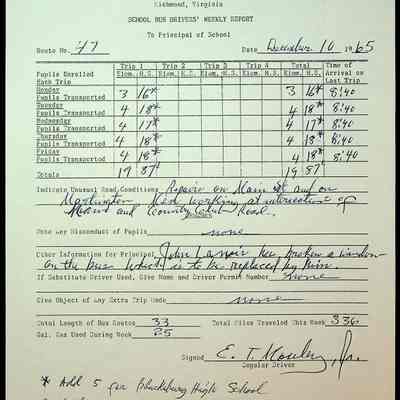 Richmond, Virginia
SCHOOL BUS DRIVERS' WEEKLY REPORT
To Principal of School
Route No. 47 Date December 10, 1965
Trip 1 Trip 2 Trip 3 Trip 4 Total Time of
Pupils Enrolled Elem. H.S. Elem. H.S. Elem. H.S. Elem. H.S. Elem. H.S. Arrival on
Each Trip Last Trip
Monday
Pupils Transported 3 16* 3 16* 8:40
Tuesday
Pupils Transported 4 18* 4 18* 8:40
Wednesday
Pupils Transported 4 17* 4 17* 8:40
Thursday
Pupils Transported 4 18* 4 18* 8:40
Friday
Pupils Transported 4 18* 4 18* 8:40
19 87* 19 87
Indicate Unusual Road Conditions Repair on Main St and on
working at intersection of
and Country Club Road.
Note any Misconduct of Pupils none
Other Information for Principal John has broken a window
on the bus which is to be replaced by him.
If Substitute Driver Used, Give Name and Driver Permit Number none
Give Object of Any Extra Trip Made none
Total Length of Bus Routes 33 Total Miles Traveled This Week 336
Gal. Gas Used During Week 25
Signed E. T. Jr.
Regular Driver
* Add 5 for Blacksburg High School